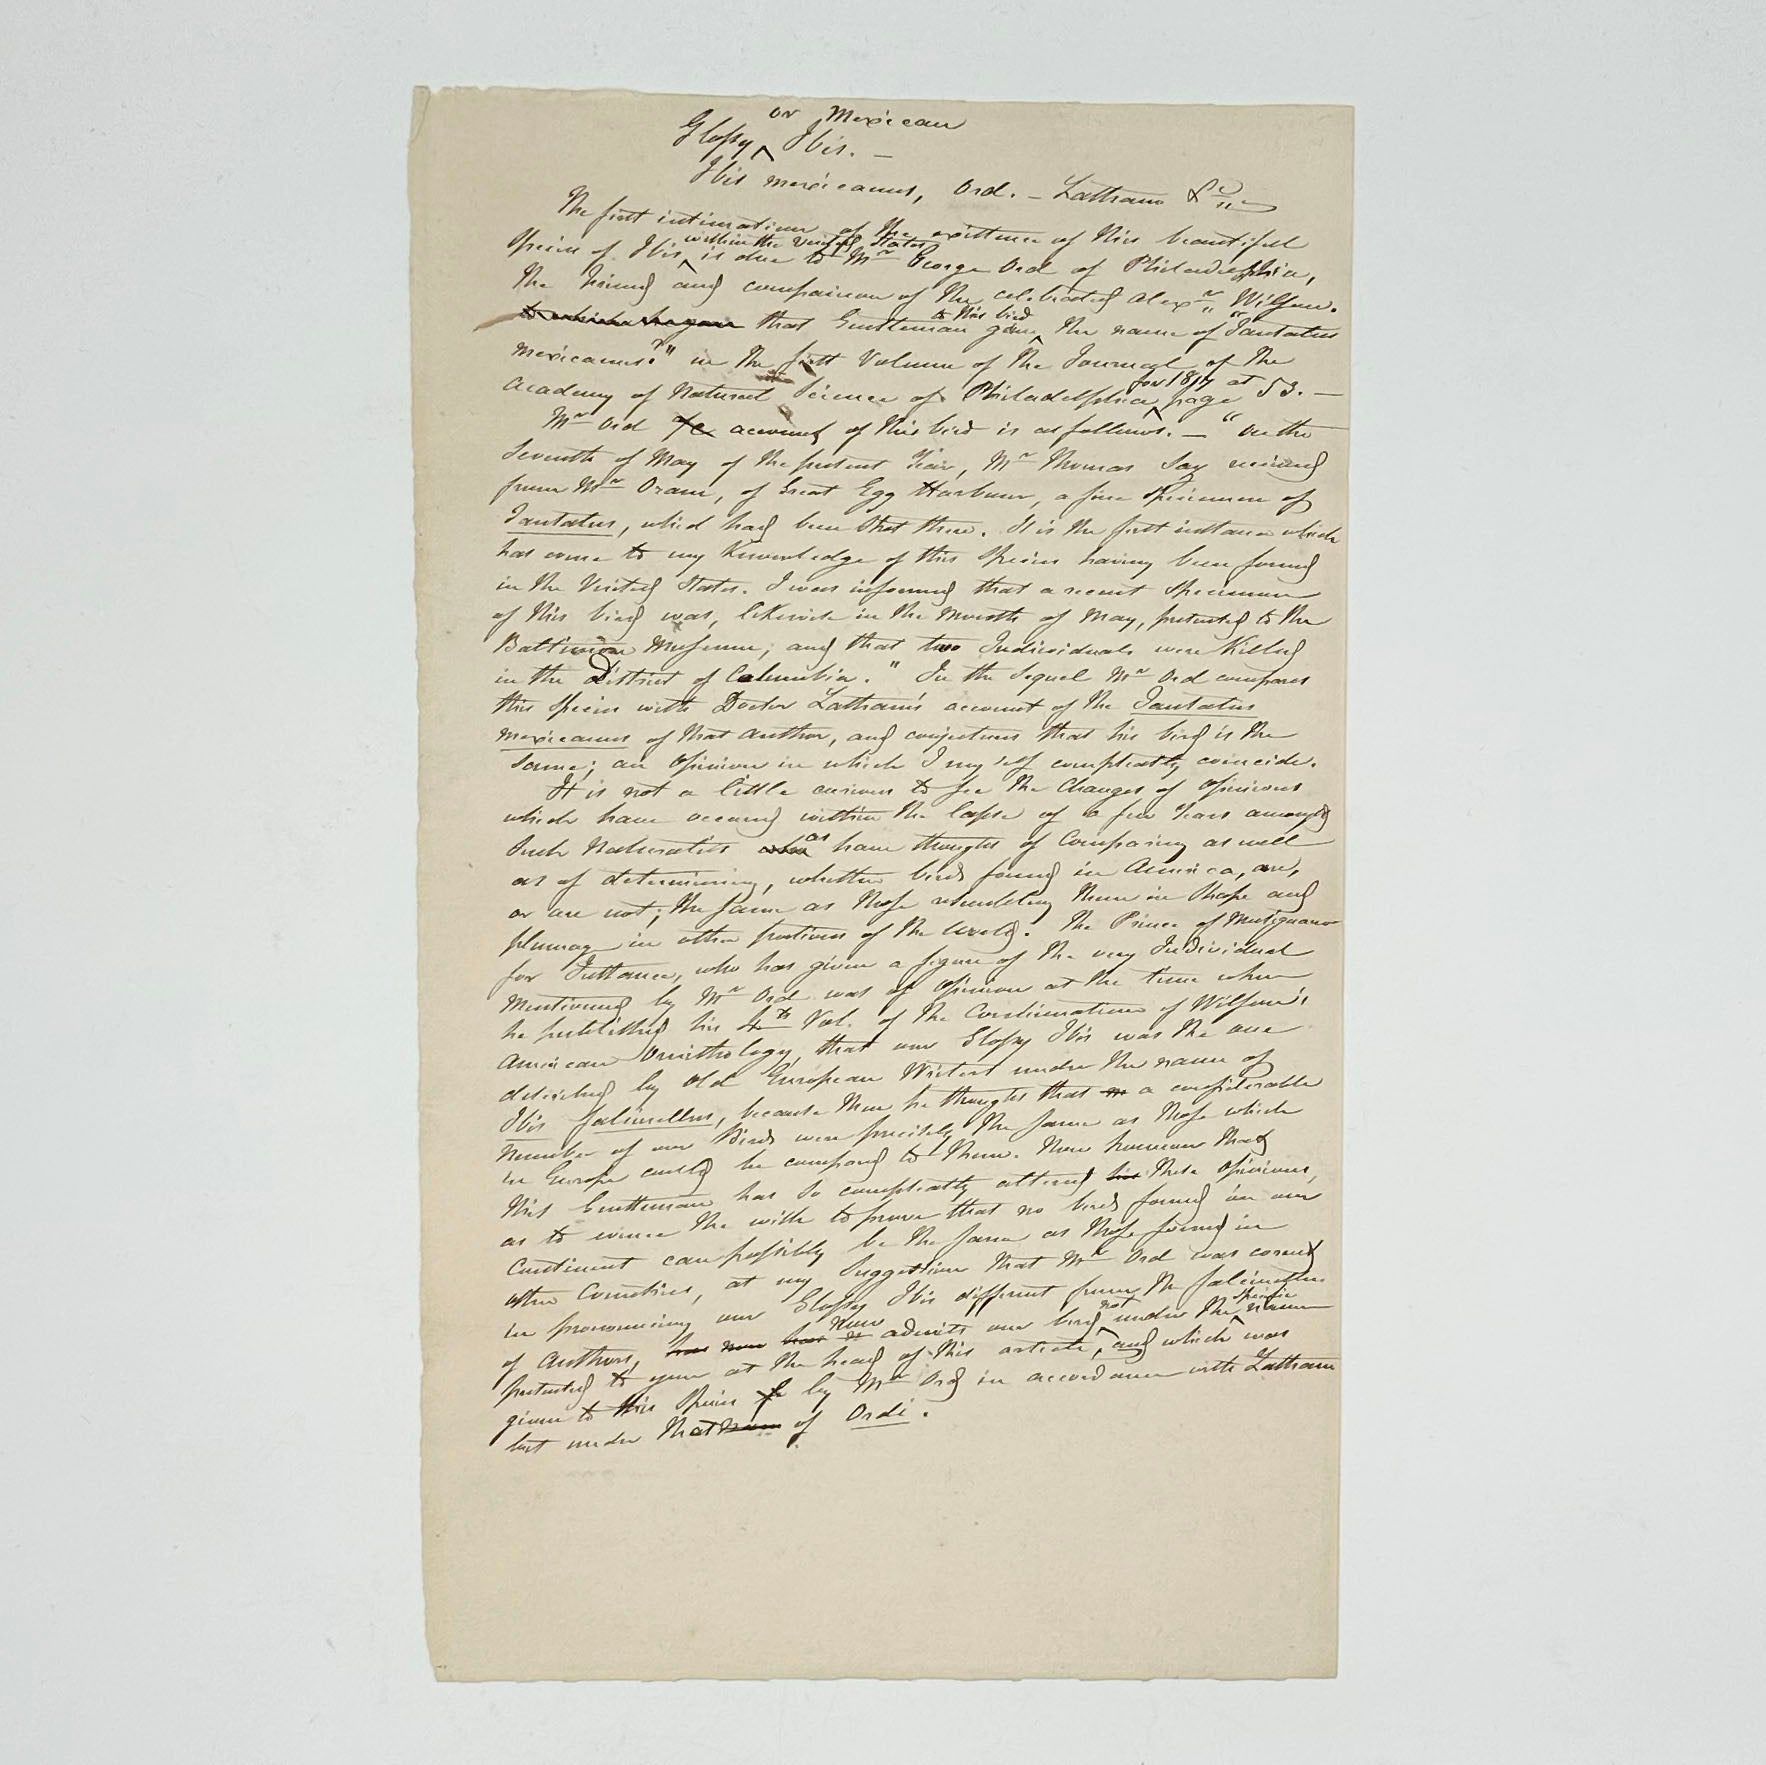 or Mexican
Glossy ^ Ibis. —
Ibis mexicanus, Ord. — Latham &c
The first intimation of the existence of this beautiful
within the United States
Species of Ibis ^ is due to Mr George Ord of Philadelphia,
the friend and companion of the celebrated Alexr Wilson.
to this bird
to which he gave that Gentleman gave ^ the name of "Tantalus
mexicanus?" in the first Volume of the Journal of the
for 1817
Academy of Natural Science of Philadelphia ^ page at 53. —
Mr Ord account of this bird is as follows. — "On the
Seventh of May of the present Year, Mr Thomas Say received
from Mr Oram, of Great Egg Harbour, a fine Specimen of
Tantalus, which had been shot there. It is the first instance which
has come to my Knowledge of this Species having been found
in the United States. I was informed that a recent Specimen
of this bird was, likewise in the Month of May, presented to the
Baltimore Museum; and that two Individuals were Killed
in the District of Columbia." In the Sequel Mr Ord compares
this Species with Doctor Latham's account of the Tantalus
mexicanus of that author, and conjectures that his bird is the
Same; an Opinion in which I myself compleatly coincide.
It is not a little curious to see the Changes of Opinions
which have occured within the lapse of a few Years amongst
as
Such Naturalists who have thought of Comparing as well
as of determining, whether birds found in America, are,
or are not; the same as those resembling them in Shape and
plumage in other portions of the World. The Prince of Musignano
for Instance, who has given a figure of the very Individual
Mentioned by Mr Ord was of Opinion at the time when
he published his 4th Vol. of the Continuation of Wilson's
American Ornithology, that our Glossy Ibis was the one
described by Old European Writers under the name of
Ibis falcinellus, because then he thought that a considerable
number of our Birds were precisely the same as those which
in Europe could be compared to them. Now however that
this Gentleman has so compleatly altered his these opinions,
as to evince the wish to prove that no birds found in our
Continent can possibly be the same as those found in
other Countries, at my Suggestion that Mr Ord was correct
in pronouncing our Glossy Ibis different from the falcinellus
Now not specific
of Authors, has now has admits our bird ^ under the ^ name
presented to you at the head of this article, and which was
given to this Species by Mr Ord in accordance with Latham
but under that name of Ordi.